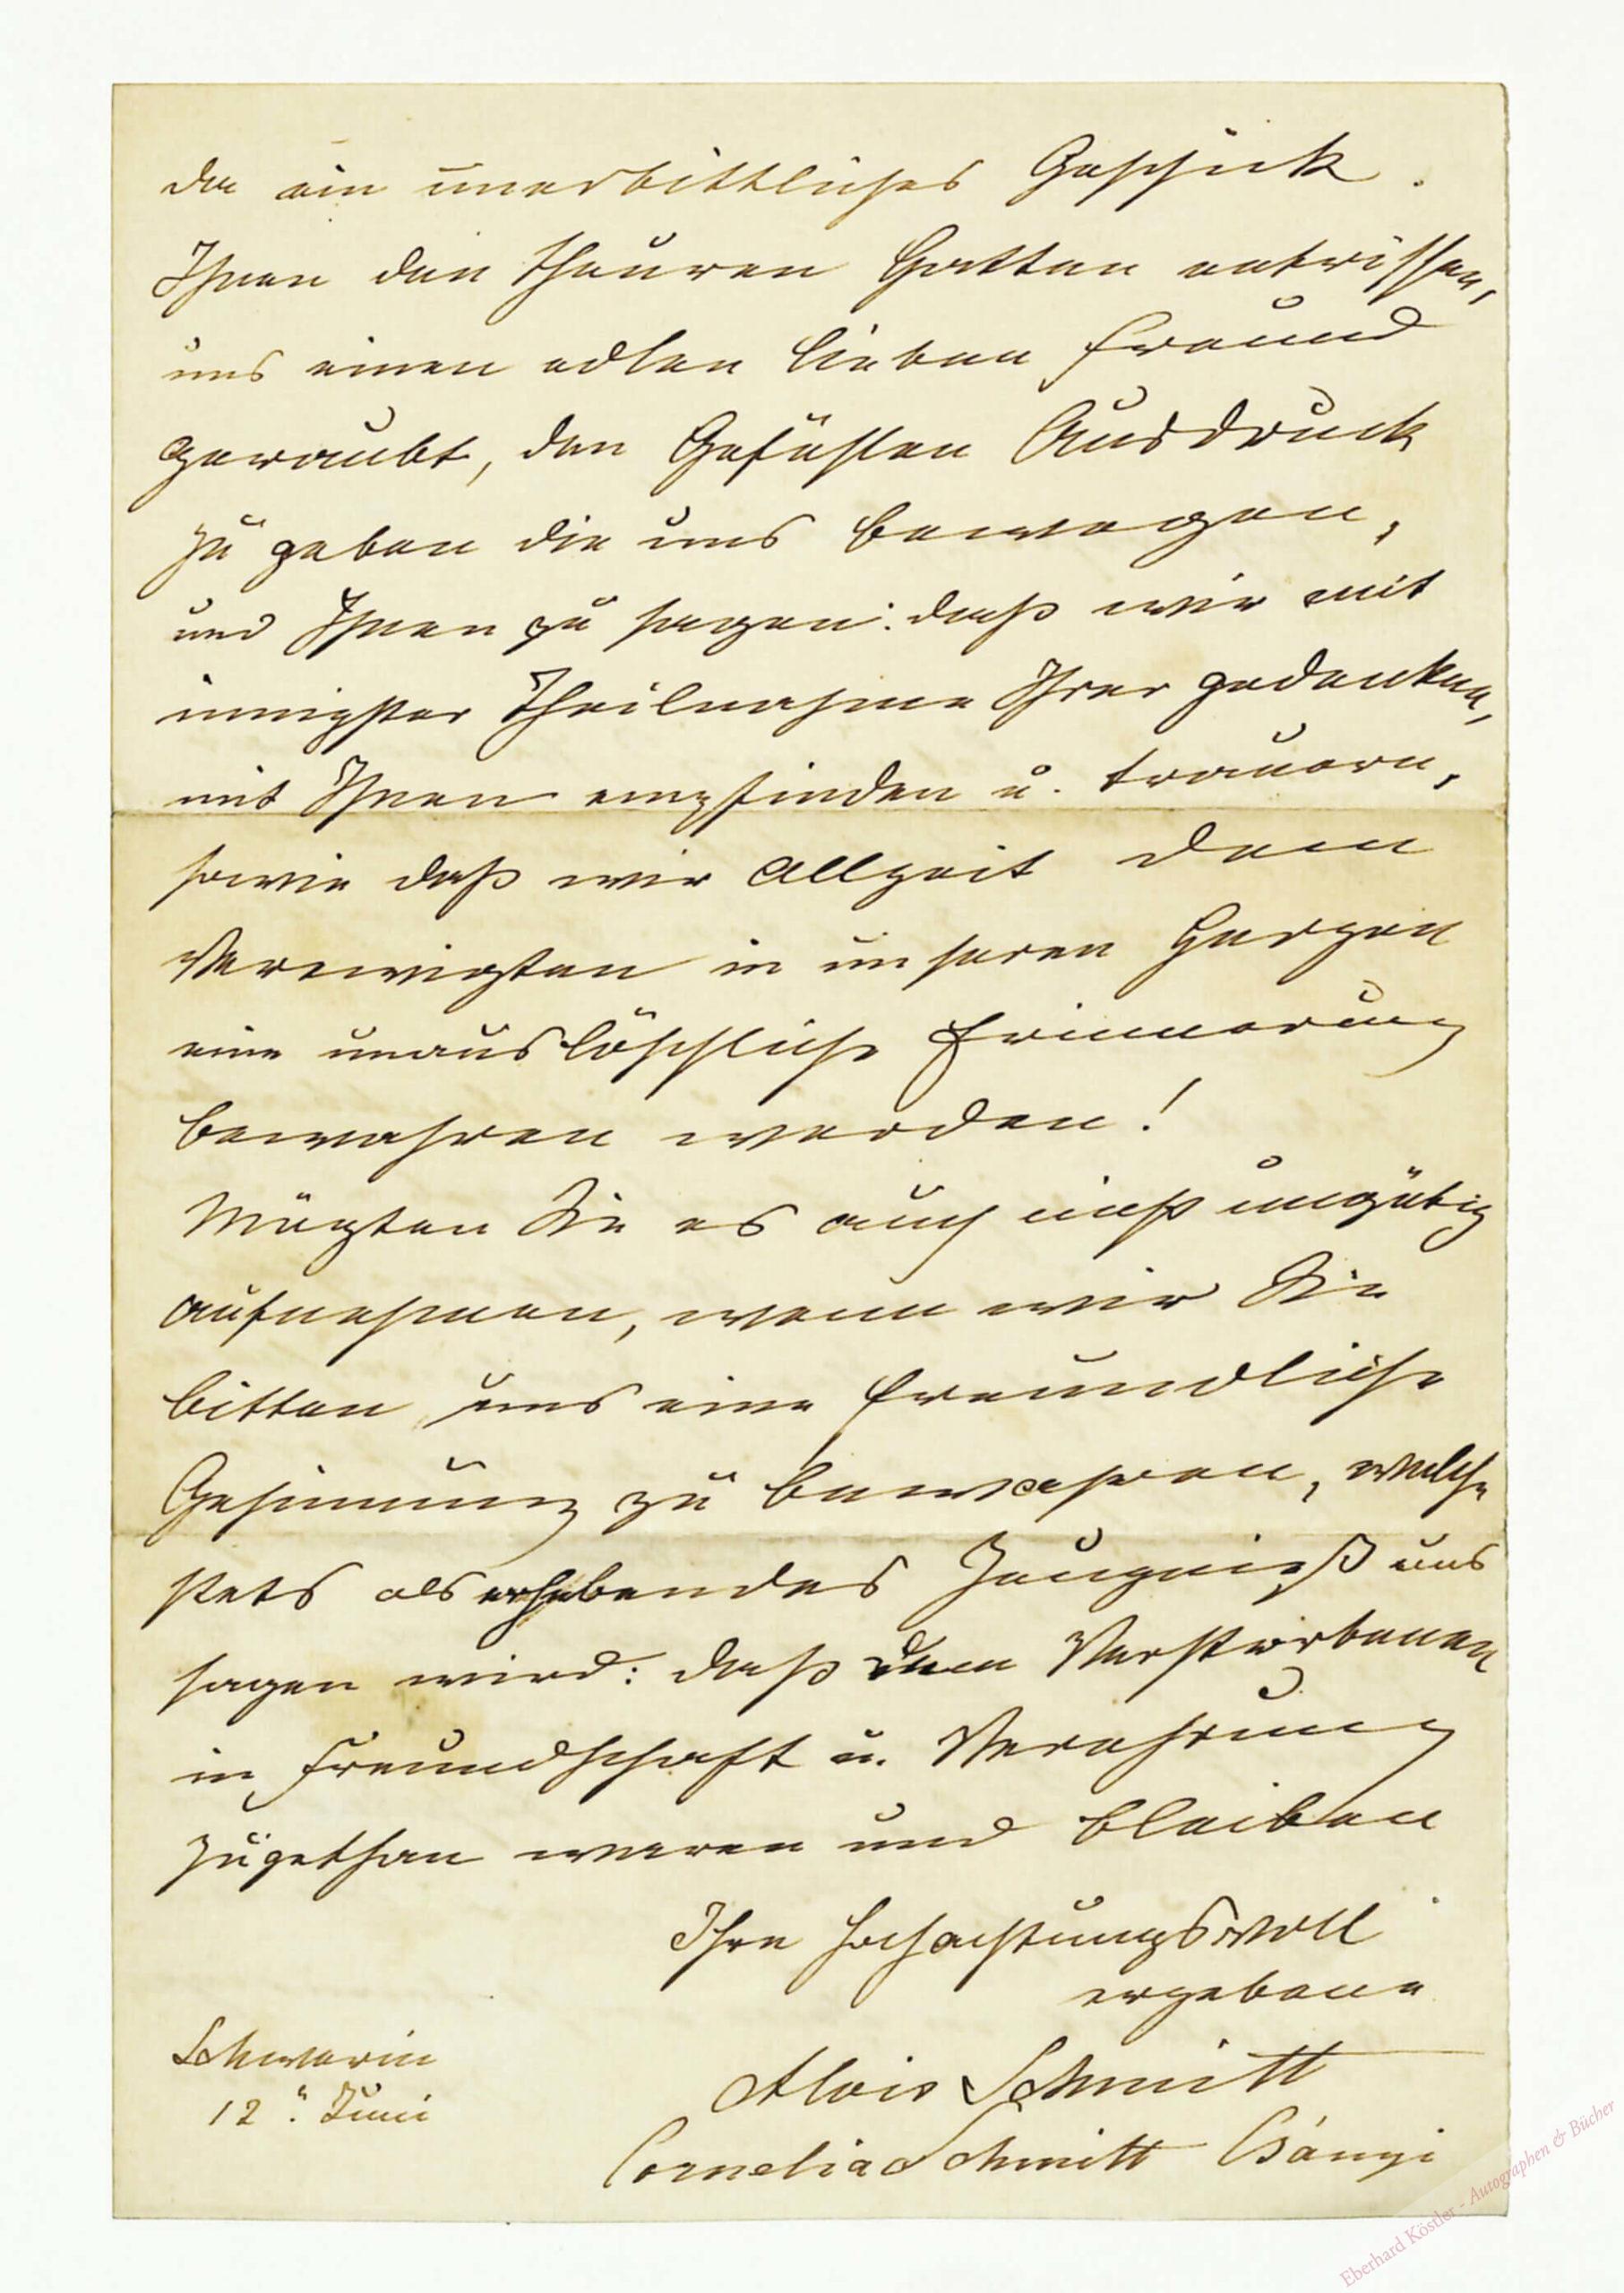 da ein unerbittliches Geschick
Ihnen den theuren Gatten entrissen,
uns einen edlen lieben Freund
geraubt, den Gefühlen Ausdruck
zu geben die uns bewegen,
und Ihnen zu sagen: daß wir mit
innigster Theilnahme Ihrer gedenken,
mit Ihnen empfinden u. trauern,
sowie daß wir allzeit dem
Verewigten in unseren Herzen
eine unauslöschliche Erinnerung
bewahren werden!
Mögten Sie es auch nicht ungütig
aufnehmen, wenn wir Sie
bitten uns eine freundliche
Gesinnung zu bewahren, welche
stets als erhebendes Zeugnieß uns
sagen wird: daß dem Verstorbenen
in Freundschaft u. Verehrung
zugethan waren und bleiben
Ihre hochachtungsvoll
ergebene
Schwerin
12.ᵗ Juni
Alois Schmitt
Cornelia Schmitt Csányi
Eberhard Köstler - Autographen & Bücher